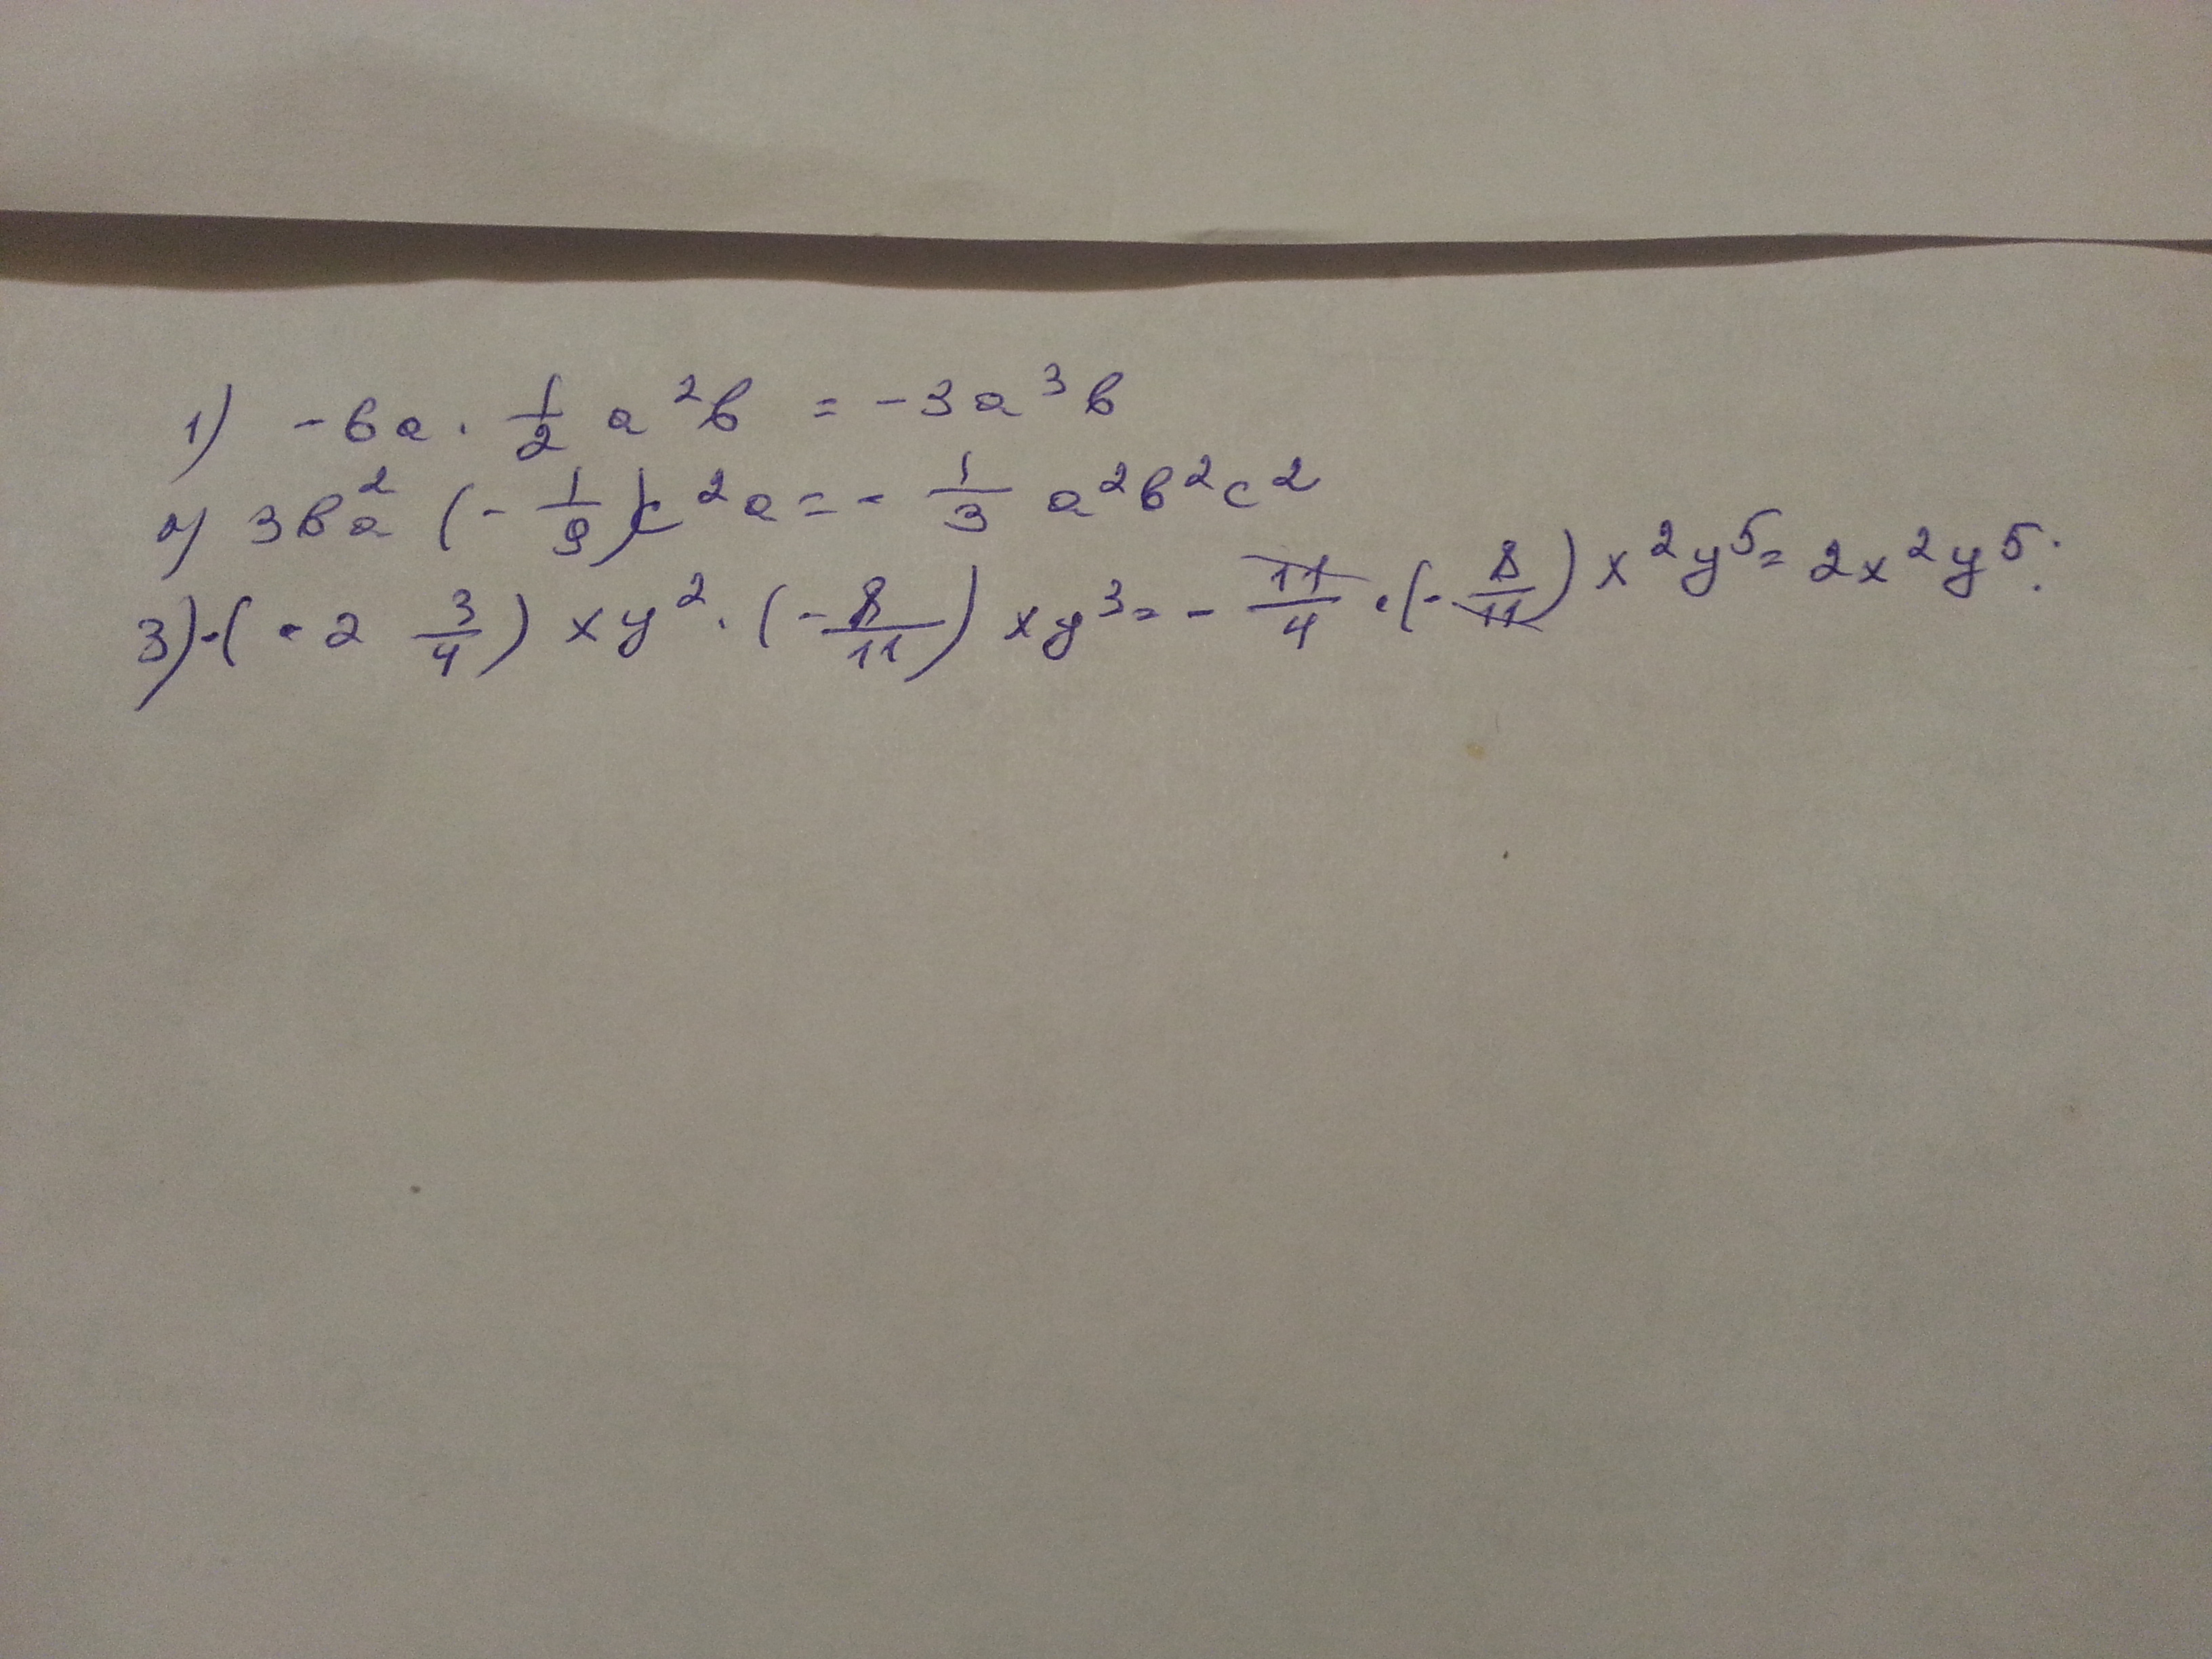 1) -6a · 1/2 a²b = -3a³b
2) 3ba² (-1/9)c²a = -1/3 a²b²c²
3) -(-2 3/4) xy² · (-8/11) xy³ = -11/4 · (-8/11) x²y⁵ = 2x²y⁵.